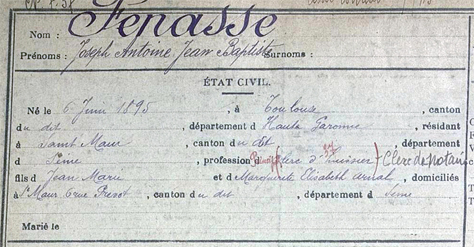 Fenasse
Nom :
Prénoms : Joseph Antoine Jean Baptiste Surnoms :
ÉTAT CIVIL.
Né le 6 Juin 1895, à Toulouse, canton
du dit, département d Haute Garonne, résidant
à Saint Maur, canton du dit, département
d Seine, profession d clerc d'huissier 37 Clerc de notaire
fils d Jean Marie et d Marguerite Elisabeth Arnal, domiciliés
à St Maur 6 rue Prevot, canton du dit, département d Seine
Marié le